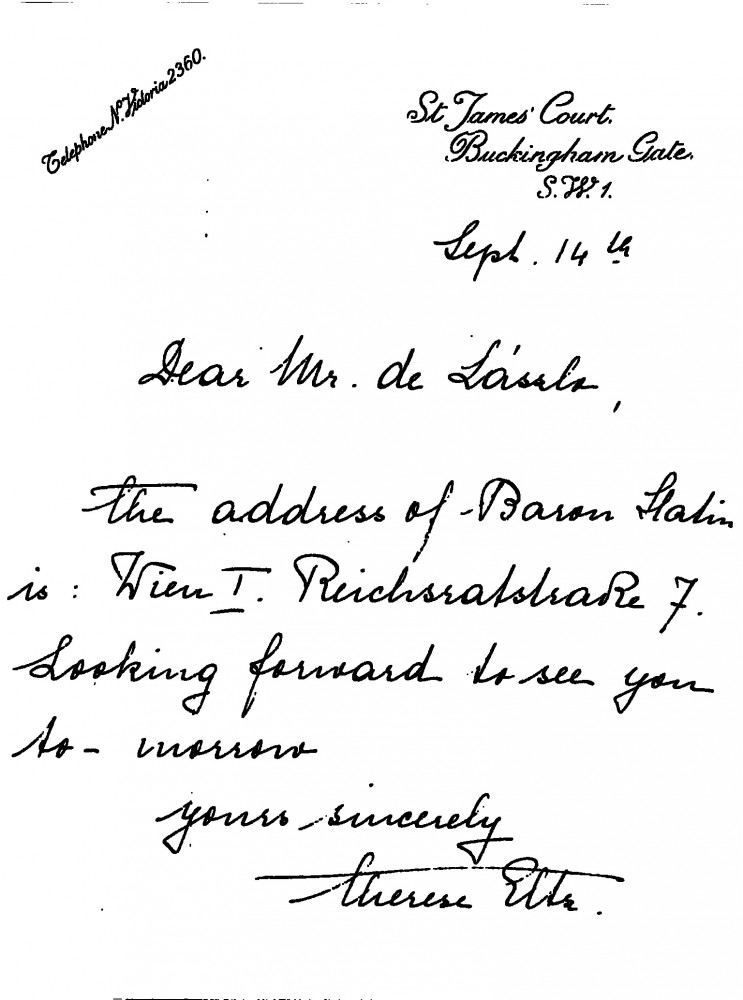 Telephone No. Victoria 2360.
St James' Court.
Buckingham Gate.
S.W. 1.
Sept. 14th
Dear Mr. de László,
the address of Baron Slatin
is: Wien I. Reichsratstraße 7.
Looking forward to see you
to-morrow
yours sincerely
Therese Eltz.